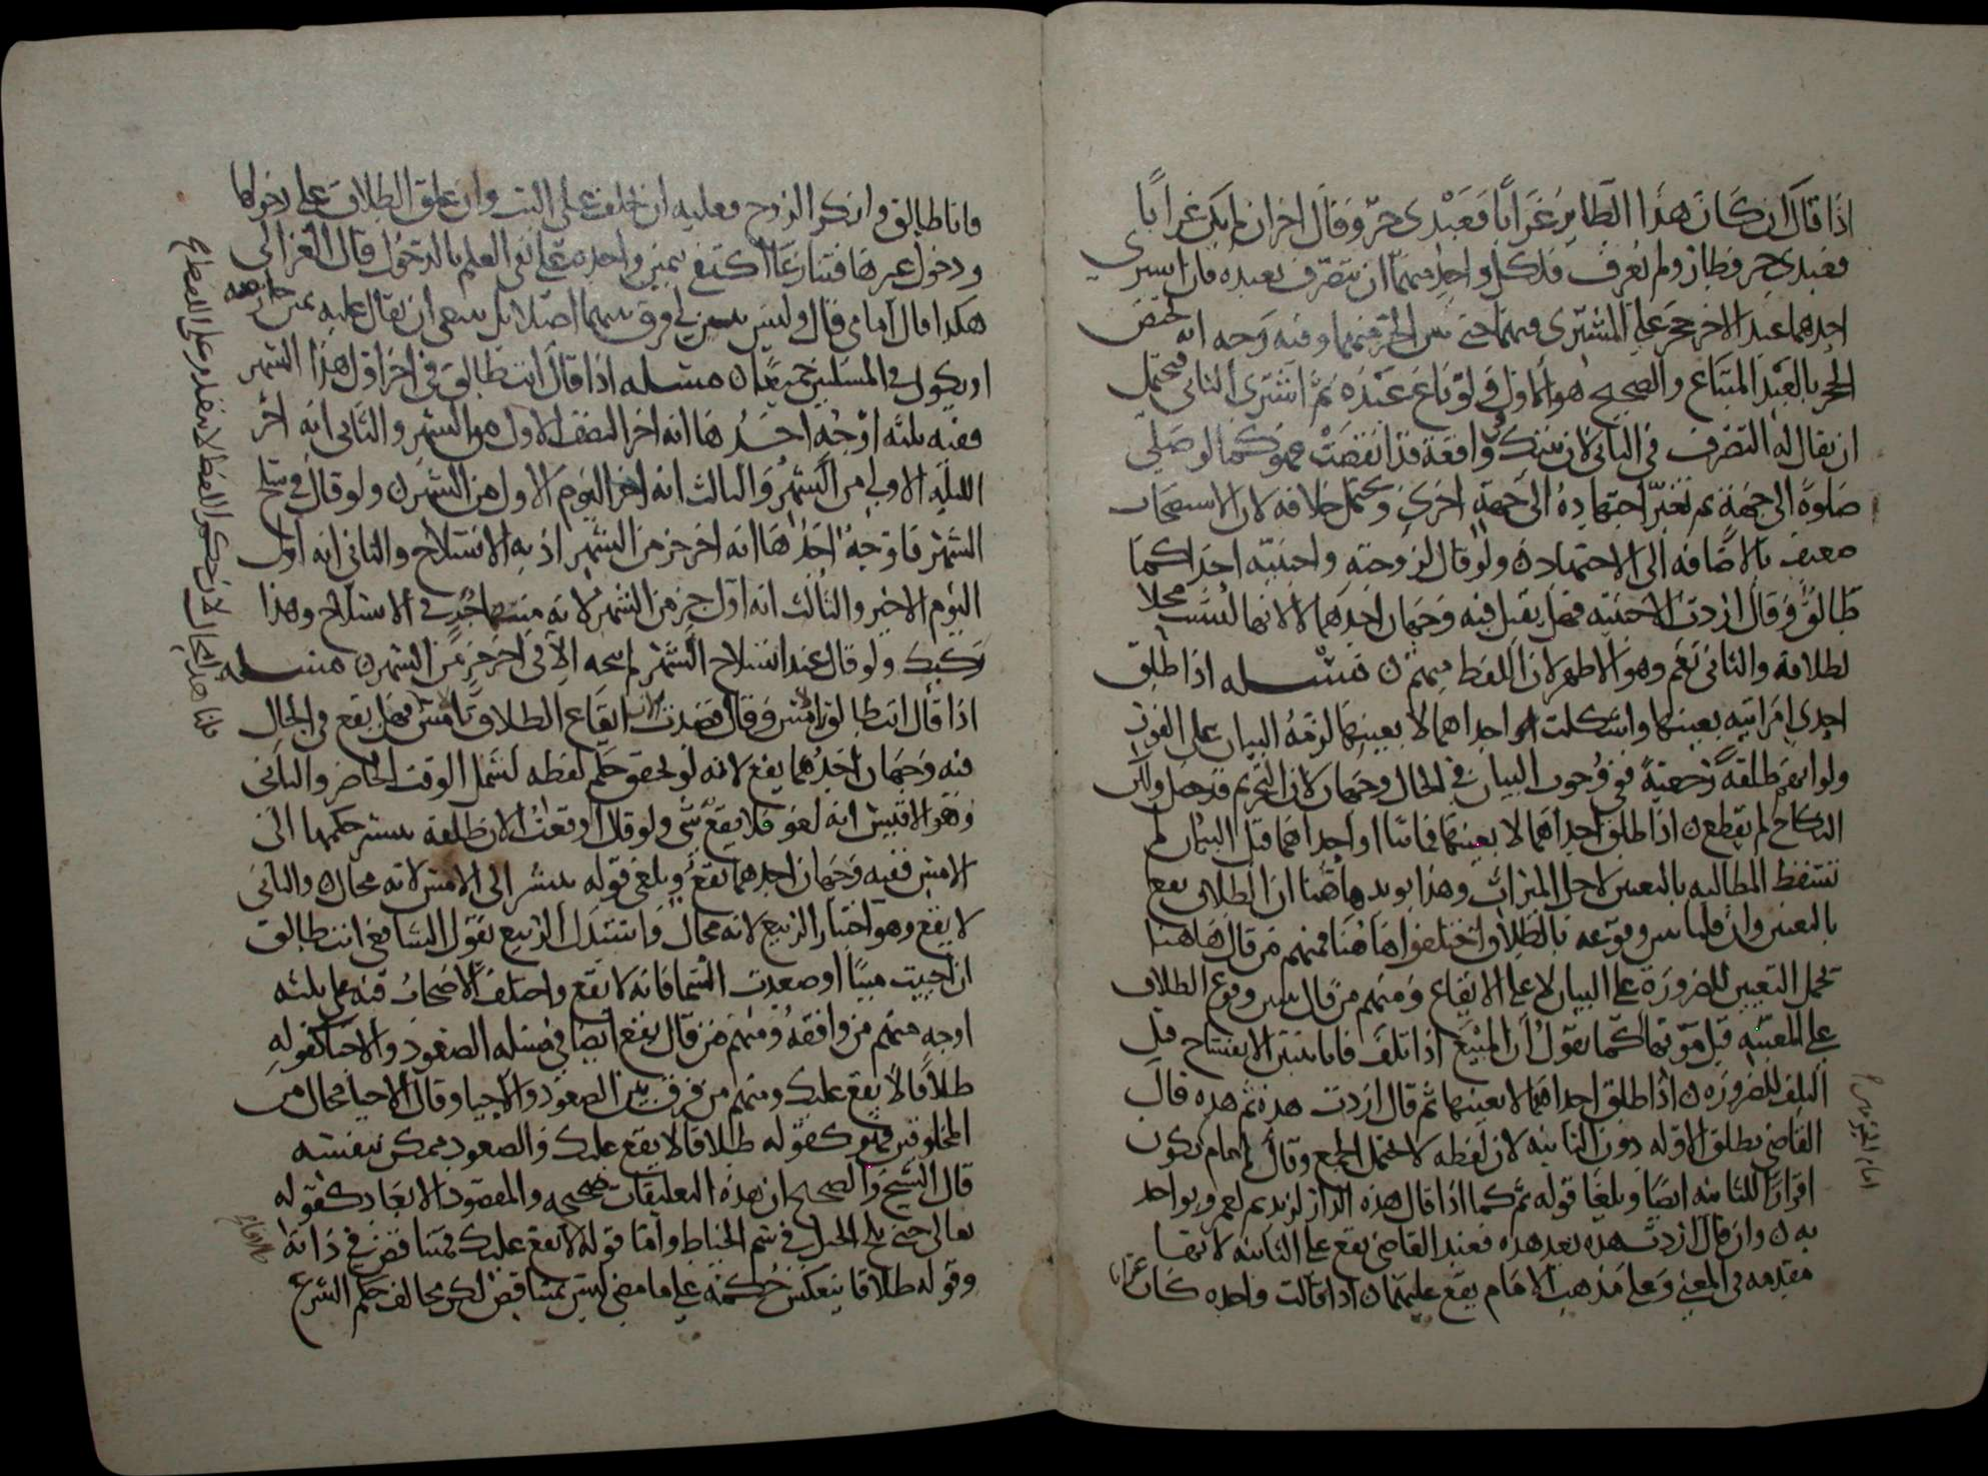 اذا قال ان كان هذا الطاير غرابا فعبدى حر وقال اخر ان لم يكن غرابا
فعبدى حر وطار ولم يعرف فلكل واحد منهما ان يتصرف بعبده فان اشترى
احدهما عبد الاخر حجر على المشترى فيهما حتى يبين الحر منهما وفيه وجه انه يختص
الحجر بالعبد المبتاع والصحيح هو الاول فلو باع عبده ثم اشترى الثانى فيحتمل
ان يقال له التصرف فى الثانى لان تيك واقعة قد انقضت فهو كما لو صلى
صلوة الى جهة ثم تغير اجتهاده الى جهة اخرى ويحتمل خلافه لان الاستصحاب
ضعيف بالاضافة الى الاجتهاد ولو قال لزوجته واجنبية احداكما
طالق وقال اردت الاجنبية فهل يقبل فيه وجهان احدهما لا لانها ليست محلا
لطلاقه والثانى نعم وهو الاظهر لان اللفظ مبهم مسله اذا طلق
احدى امراتيه بعينها واشكلت او احداهما لا بعينها لزمه البيان على الفور
ولو ابهم طلقة رجعية ففى وجوب البيان فى الحال وجهان لان التحريم قد حصل ولكن
النكاح لم ينقطع اذا طلق احداهما لا بعينها فماتتا او احداهما قبل البيان لم
تسقط المطالبه بالتعيين لاجل الميراث وهذا يويد ان الطلاق يقع
بالتعيين وان قلنا وقوعه باللفظ اختلفوا هاهنا فمنهم من قال هاهنا
نحمل التعيين للضرورة على البيان لا على الايقاع ومنهم من قال وقوع الطلاق
على المعينه قبل موتها كما نقول ان المبيع اذا تلف فانا نتبين الانفساخ قبل
التلف للضروره اذا طلق احداهما لا بعينها ثم قال اردت هذه ثم هذه قال
القاضى تطلق الاوله دون الثانيه لان لفظه لا يحتمل الجمع وقال الامام يكون
اقرارا للثانيه ايضا ويلغا قوله ثم كما اذا قال هذه الدار لزيد ثم لعمرو يواخذ
به وان قال اردت هذه بعد هذه فعند القاضى يقع على الثانيه لانها
مقدمه فى المعنى وعلى مذهب الامام يقع عليهما اذا قالت واحده كان غرابا
فانا طالق وانكر الزوج فعليه ان يحلف على البت وان علق الطلاق على دخولها
ودخول غيرها فتنازعا اكتفى بيمين واحده على نفى العلم بالدخول قال الغزالى
هكذا قال امامى قال وليس يبين لى فرق بينهما اصلا بل ينبغى ان يقال عليه يمين جازمه
او نكول فى المسلتين جميعا مسله اذا قال انت طالق فى اخر اول هذا الشهر
ففيه ثلثه اوجه احدها انه اخر النصف الاول من الشهر والثانى انه اخر
الليله الاولى من الشهر والثالث انه اخر اليوم الاول من الشهر ولو قال فى سلخ
الشهر فاوجه احدها انه اخر جز من الشهر اذ به الانسلاخ والثانى انه اول
اليوم الاخير والثالث انه اول جز من الشهر لانه منه ياخذ فى الانسلاخ وهذا
ركيك ولو قال عند انسلاخ الشهر لم يتجه الا فى اخر جز من الشهر مسله
اذا قال انت طالق امس وقال قصدت الان ايقاع الطلاق بامس فهل يقع فى الحال
فيه وجهان احدهما يقع لانه لو تحقق حكم لفظه لشمل الوقت الحاضر والثانى
وهو الاقيس انه لغو فلا يقع شى ولو قال اوقعت الان طلقة ينتشر حكمها الى
الامس ففيه وجهان احدهما يقع ويلغى قوله ينتشر الى الامس لانه محال والثانى
لا يقع وهو اختيار الربيع لانه محال واستدل الربيع بقول الشافعى انت طالق
ان احييت ميتا او صعدت السما فانه لا يقع واختلف الاصحاب فيه على ثلثه
اوجه منهم من وافقه ومنهم من قال يقع ايضا فى مسله الصعود والاحيا كقوله
طلاقا لا يقع عليك ومنهم من فرق بين الصعود والاحيا وقال الاحيا محال من
المخلوقين فهو كقوله طلاقا لا يقع عليك والصعود ممكن بنفسه
قال الشيخ والصحيح ان هذه التعليقات صحيحه والمقصود الابعاد كقوله
تعالى حتى يلج الجمل فى سم الخياط واما قوله لا يقع عليك فمتناقض فى ذاته
وقوله طلاقا ينعكس حكمه على ما مضى ليس بمتناقض لكن يخالف حكم الشرع